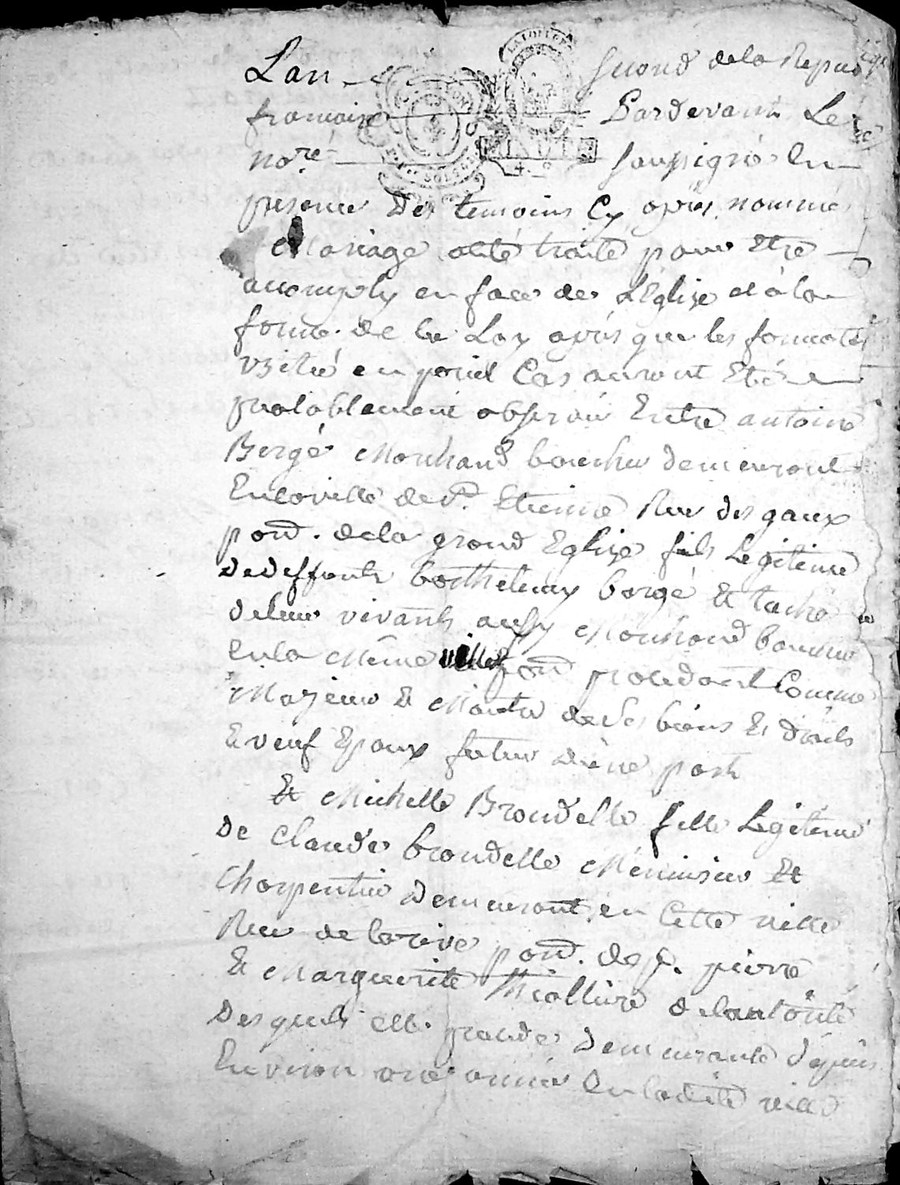 Lan second dela Repub
francaise Pardevant Le
nore soussigné En
presence Des temoins Cy après nommes
Mariage a été traité pour Etre
accomply en face de LEglise et à la
forme de la Loy après que les formalités
usité en pareil Cas auront Eté
préalablement observée Entre antoine
Bergé Marchand boucher demeurant
En la ville de St. Etienne Rue des gaux
parr. de la grand Eglise fils Legitime
De deffunts barthelemy bergé Et
de leur vivants aussy Marchand
En la Même ville parr. procedant Comme
Majeur Et Maitre de Ses biens Et droits
Et veuf Epoux futur Dune part
Et Michelle Brondelle fille Legitime
De Claude brondelle Menuisier Et
Charpentier Demeurant en Cette ville
Rue de la rive parr. de St. pierre
Et Marguerite De lautorité
Desquels elle procede Demeurante depuis
Environ une année En ladite ville